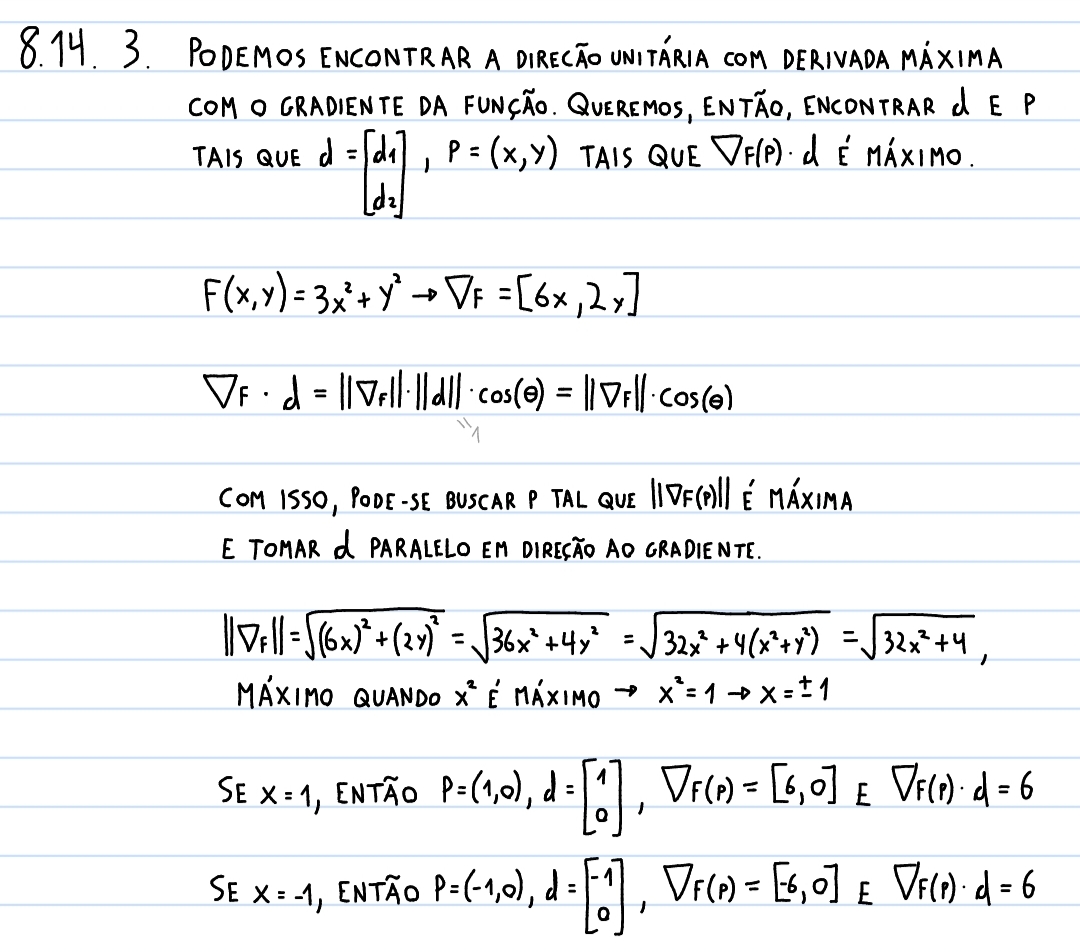 8.14. 3. PODEMOS ENCONTRAR A DIRECÃO UNITÁRIA COM DERIVADA MÁXIMA
COM O GRADIENTE DA FUNÇÃO. QUEREMOS, ENTÃO, ENCONTRAR d E P
TAIS QUE d = [d1 d2], P = (x,y) TAIS QUE ∇F(P) · d É MÁXIMO.
F(x,y) = 3x² + y² → ∇F = [6x, 2y]
∇F · d = ||∇F|| · ||d|| · cos(θ) = ||∇F|| · cos(θ)
"1
COM ISSO, PODE-SE BUSCAR P TAL QUE ||∇F(P)|| É MÁXIMA
E TOMAR d PARALELO EM DIREÇÃO AO GRADIENTE.
||∇F|| = √((6x)² + (2y)²) = √(36x² + 4y²) = √(32x² + 4(x² + y²)) = √(32x² + 4),
MÁXIMO QUANDO x² É MÁXIMO → x² = 1 → x = ±1
SE x = 1, ENTÃO P = (1,0), d = [1 0], ∇F(P) = [6,0] E ∇F(P) · d = 6
SE x = -1, ENTÃO P = (-1,0), d = [-1 0], ∇F(P) = [-6,0] E ∇F(P) · d = 6